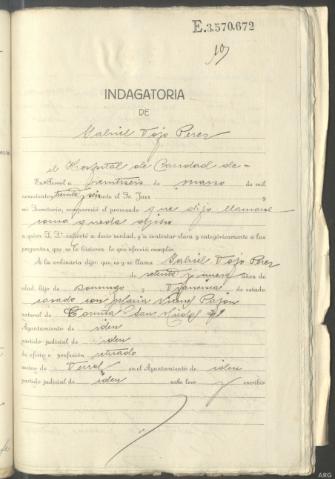 E.3.570.672
INDAGATORIA
DE
Gabriel Tojo Perez
el Hospital de Caridad de
Ferrol a veintiseis de marzo de mil
novecientos treinta y seis ante el Sr. Juez y
mi Secretario, compareció el procesado que dijo llamarse
como queda dicho
a quien S. S.ª exhortó a decir verdad, y a contestar clara y categóricamente a las
preguntas, que se le hicieren lo que ofreció cumplir.
A la ordinaria dijo: que es y se llama Gabriel Tojo Perez
de años de
edad, hijo de Domingo y de estado
casado con
natural de Coruña San
Ayuntamiento de idem
partido judicial de idem
de oficio o profesión retirado
vecino de Ferrol en el Ayuntamiento de idem
partido judicial de idem sabe leer y escribir
ARG